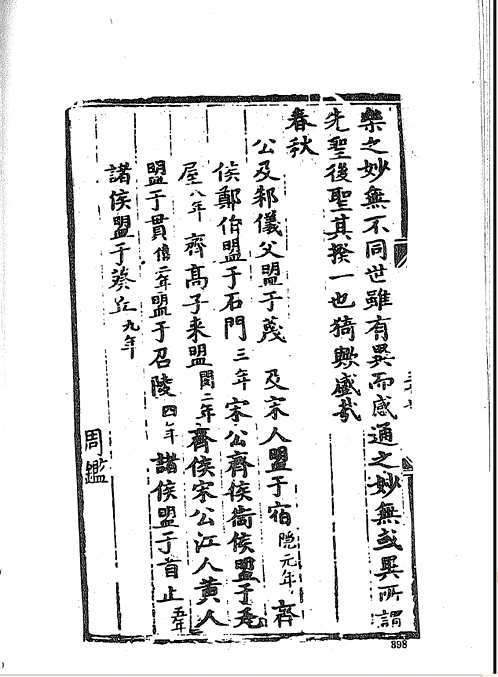 樂之妙無不同世雖有異而感通之妙無或異所謂
先聖後聖其揆一也猗歟盛哉
春秋
公及邾儀父盟于蔑 及宋人盟于宿隱元年 齊
侯鄭伯盟于石門三年 宋公齊侯衞侯盟于瓦
屋八年 齊高子來盟閔二年 齊侯宋公江人黃人
盟于貫僖二年 盟于召陵四年 諸侯盟于首止五年
諸侯盟于葵丘九年
周鑑
398